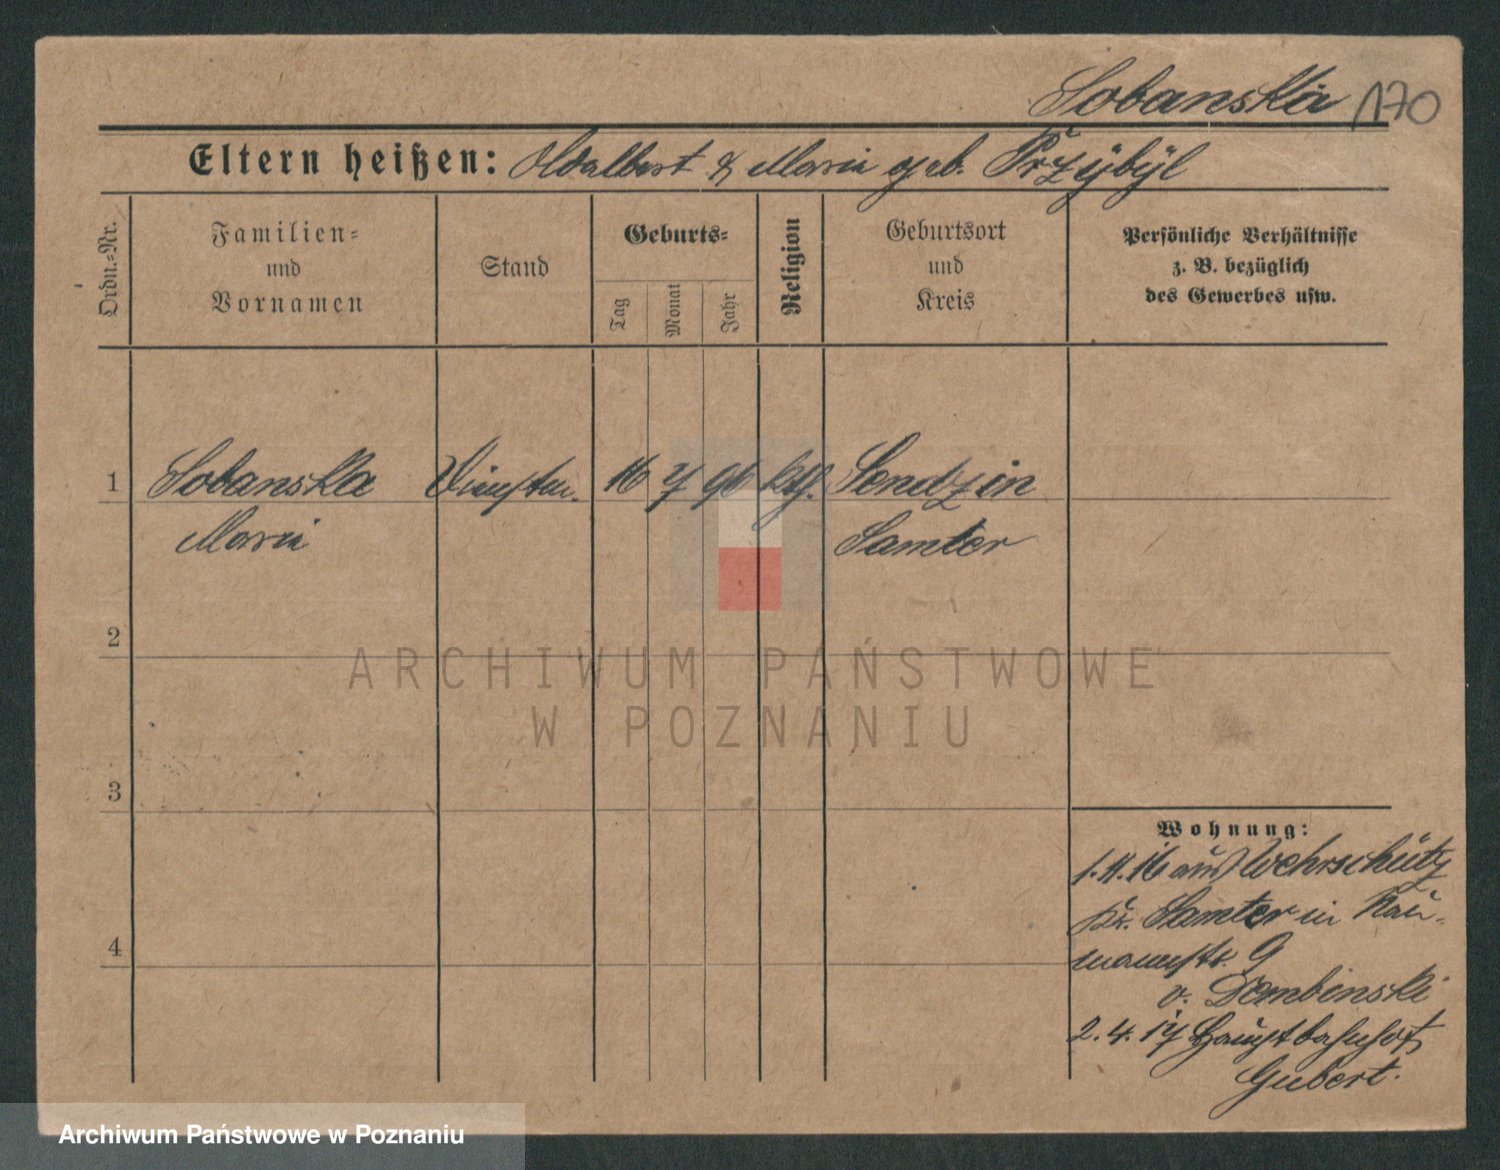 Sobanska 170
Eltern heißen: Adalbert & Maria geb. Przÿbÿl
Ordn.-Nr.
Familien-
und
Vornamen
Stand
Geburts-
Tag
Monat
Jahr
Religion
Geburtsort
und
Kreis
Persönliche Verhältnisse
z. B. bezüglich
des Gewerbes usw.
1 Sobanska 16 7 96 kth. Sendzin
Maria Samter
2
3
4
ARCHIWUM PAŃSTWOWE
W POZNANIU
Wohnung:
1.4.16 aus Wehrschütz
Kr. Samter in Nau-
mannstr. 9
v. Dembinski
2.4.17 Hauptbahnhof
Archiwum Państwowe w Poznaniu